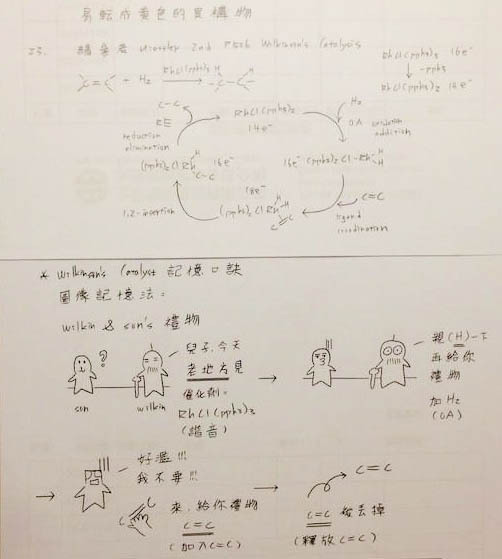 易転成黃色的異構物
C=C + H2 RhCl(pph3)3 H H -C-C-
RhCl(pph3)3 16e-
-pph3
RhCl(pph3)2 14e-
C-C
RE
reduction
elimination
RhCl(pph3)2
14e-
H2
OA oxidation
addition
(pph3)2 Cl Rh H C-C 16e-
16e- (pph3)2 Cl-Rh H H
18e-
1,2-insertion
(pph3)2 Cl Rh H H C=C
C=C
ligand
coordination
* Wilkinson's Catalyst 記憶口訣
圖像記憶法:
wilkin & son's 禮物
?
兒子,今天
老地方見
催化劑:
RhCl(pph3)3
(諧音)
son wilkin
親(H)一下
再給你
禮物
加H2
(OA)
囧
好濫!!!
我不要!!!
來,給你禮物
C=C
(加入C=C)
C=C
C=C 被丟掉
(釋放C=C)